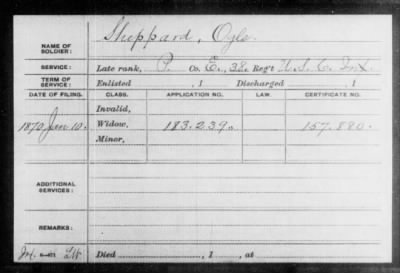 NAME OF SOLDIER: Sheppard, Ogle
SERVICE: Late rank, P. Co. E, 38 Reg't U. S. C. Inf.
TERM OF SERVICE: Enlisted , 1 Discharged , 1
DATE OF FILING. CLASS. APPLICATION NO. LAW. CERTIFICATE NO.
Invalid,
1870 Jan 10. Widow, 183.239. 157.880.
Minor,
ADDITIONAL SERVICES:
REMARKS:
Died , 1 , at